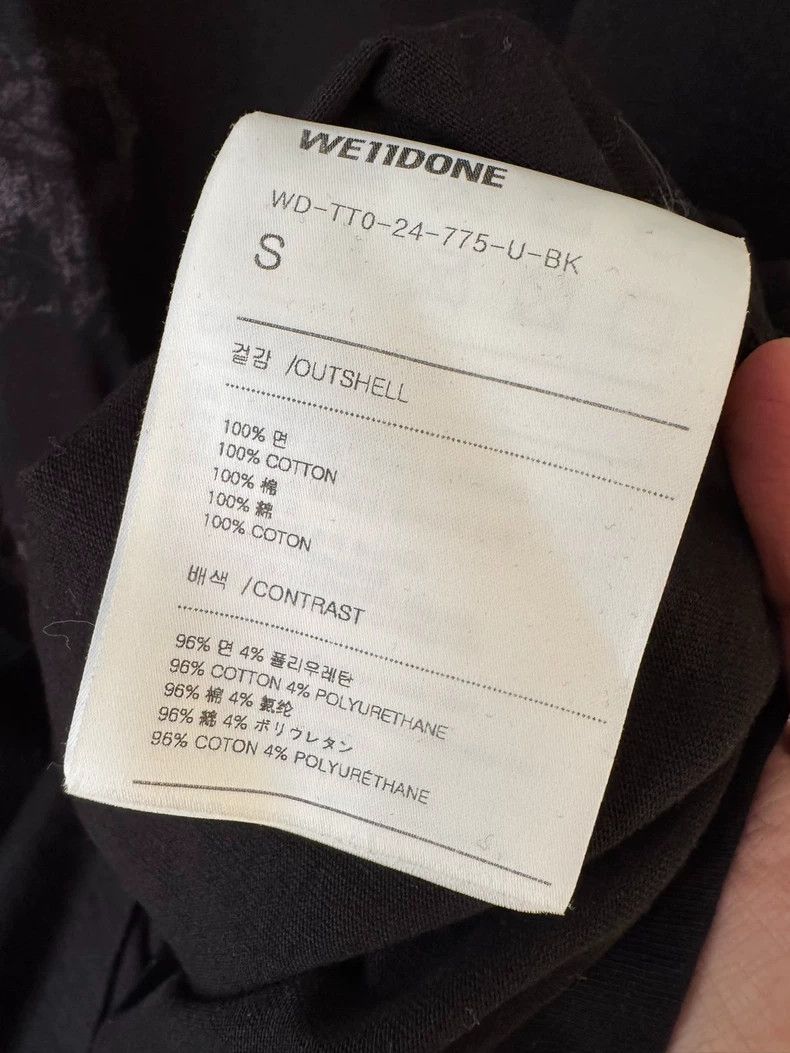 WE11DONE
WD-TT0-24-775-U-BK
S
겉감 /OUTSHELL
100% 면
100% COTTON
100% 棉
100% 綿
100% COTON
배색 /CONTRAST
96% 면 4% 폴리우레탄
96% COTTON 4% POLYURETHANE
96% 棉 4% 氨纶
96% 綿 4% ポリウレタン
96% COTON 4% POLYURÉTHANE